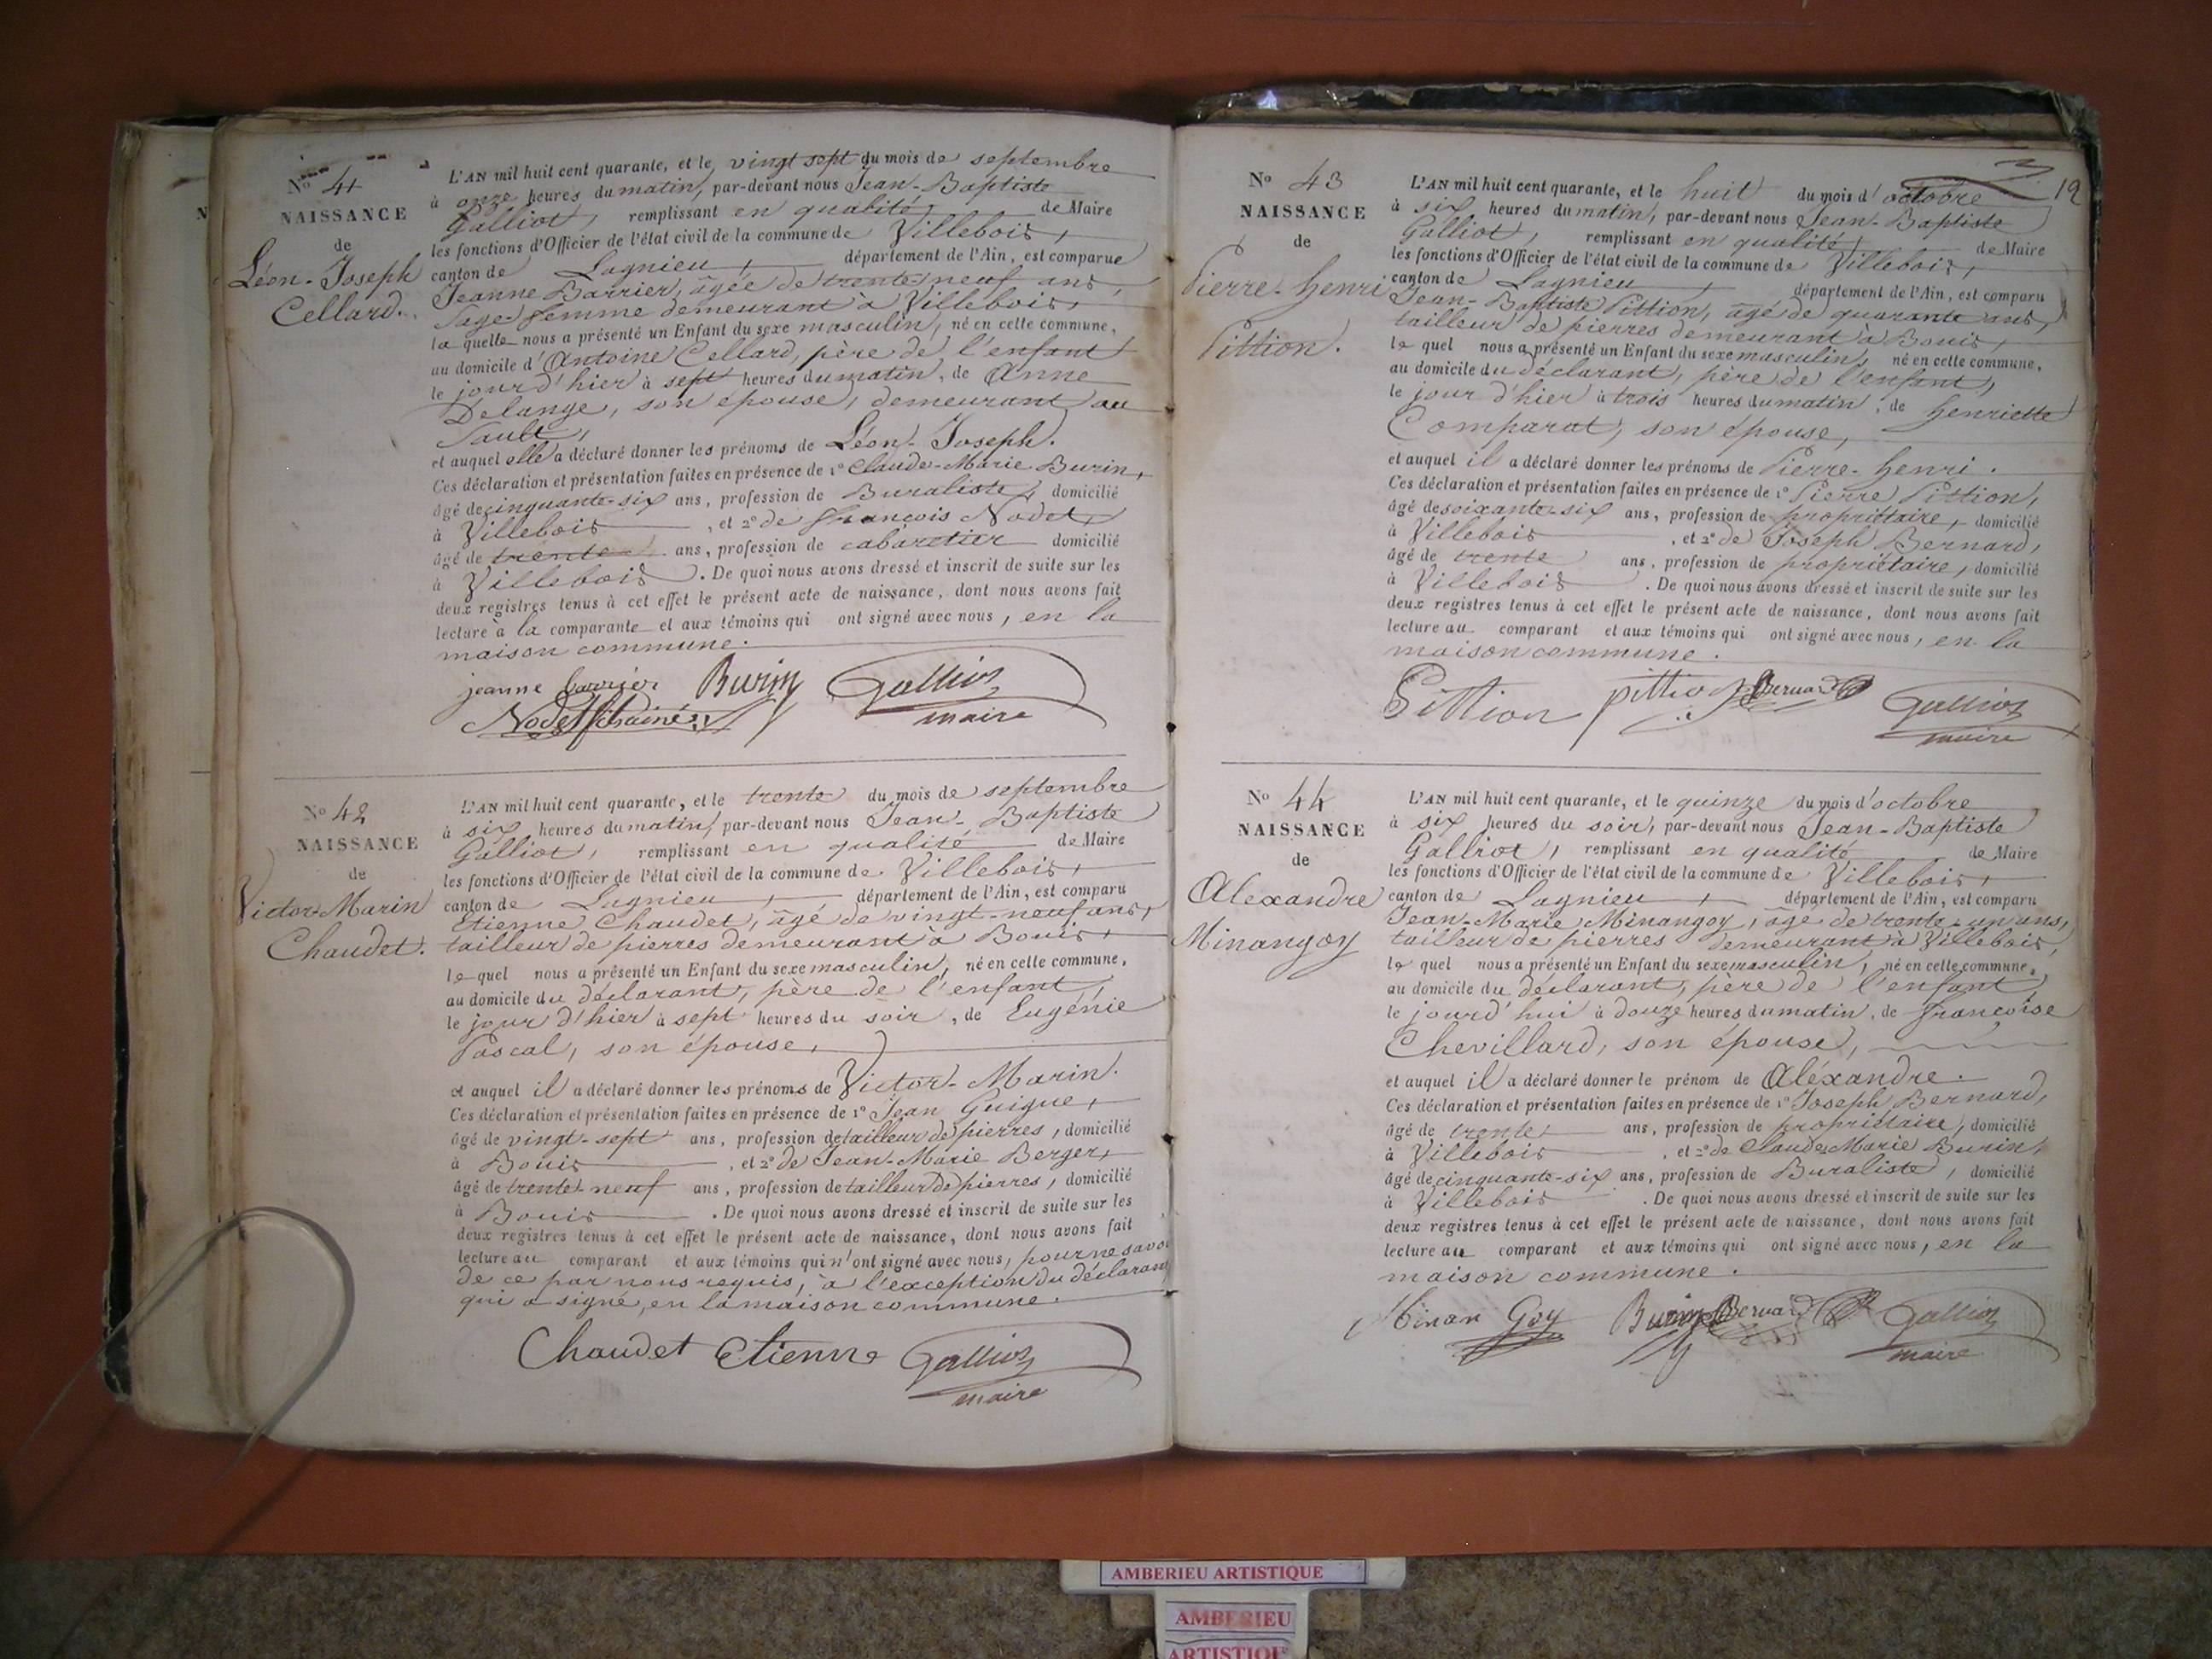 No 41
NAISSANCE
de
Léon-Joseph
Cellard.
L'AN mil huit cent quarante, et le vingt sept du mois de septembre
à onze heures du matin, par-devant nous Jean-Baptiste
Galliot, remplissant en qualité de Maire
les fonctions d'Officier de l'état civil de la commune de Villebois,
canton de Lagnieu, département de l'Ain, est comparue
Jeanne Barrier, agée de trente-neuf ans,
sage-femme demeurant à Villebois,
laquelle nous a présenté un Enfant du sexe masculin, né en cette commune,
au domicile d'Antoine Cellard, père de l'enfant
le jour d'hier à sept heures du matin, de Anne
Delange, son épouse, demeurant au
Sault,
et auquel elle a déclaré donner les prénoms de Léon-Joseph.
Ces déclaration et présentation faites en présence de 1° Claude-Marie Burin,
âgé de cinquante-six ans, profession de Buraliste, domicilié
à Villebois, et 2° de françois Nodet,
âgé de trente ans, profession de cabaretier domicilié
à Villebois. De quoi nous avons dressé et inscrit de suite sur les
deux registres tenus à cet effet le présent acte de naissance, dont nous avons fait
lecture à la comparante et aux témoins qui ont signé avec nous, en la
maison commune.
jeanne barrier Burin Galliot
Nodet maire
No 42
NAISSANCE
de
Victor-Marin
Chaudet.
L'AN mil huit cent quarante, et le trente du mois de septembre
à six heures du matin, par-devant nous Jean-Baptiste
Galliot, remplissant en qualité de Maire
les fonctions d'Officier de l'état civil de la commune de Villebois,
canton de Lagnieu, département de l'Ain, est comparu
Etienne Chaudet, âgé de vingt-neuf ans,
tailleur de pierres demeurant à Bouis,
lequel nous a présenté un Enfant du sexe masculin, né en cette commune,
au domicile du déclarant, père de l'enfant,
le jour d'hier à sept heures du soir, de Eugénie
Pascal, son épouse,
et auquel il a déclaré donner les prénoms de Victor-Marin.
Ces déclaration et présentation faites en présence de 1° Jean Guigue,
âgé de vingt-sept ans, profession de tailleur de pierres, domicilié
à Bouis, et 2° de Jean-Marie Berger,
âgé de trente-neuf ans, profession de tailleur de pierres, domicilié
à Bouis. De quoi nous avons dressé et inscrit de suite sur les
deux registres tenus à cet effet le présent acte de naissance, dont nous avons fait
lecture au comparant et aux témoins qui n'ont signé avec nous, pour ne savoir
de ce par nous requis, à l'exception du déclarant
qui a signé, en la maison commune.
Chaudet Etienne Galliot
maire
12
No 43
NAISSANCE
de
Pierre-henri
Pittion.
L'AN mil huit cent quarante, et le huit du mois d'octobre
à six heures du matin, par-devant nous Jean-Baptiste
Galliot, remplissant en qualité de Maire
les fonctions d'Officier de l'état civil de la commune de Villebois,
canton de Lagnieu, département de l'Ain, est comparu
Jean-Baptiste Pittion, âgé de quarante ans,
tailleur de pierres demeurant à Bouis,
lequel nous a présenté un Enfant du sexe masculin, né en cette commune,
au domicile du déclarant, père de l'enfant,
le jour d'hier à trois heures du matin, de henriette
Comparat, son épouse,
et auquel il a déclaré donner les prénoms de Pierre-henri.
Ces déclaration et présentation faites en présence de 1° Pierre Pittion,
âgé de soixante-six ans, profession de propriétaire, domicilié
à Villebois, et 2° de Joseph Bernard,
âgé de trente ans, profession de propriétaire, domicilié
à Villebois. De quoi nous avons dressé et inscrit de suite sur les
deux registres tenus à cet effet le présent acte de naissance, dont nous avons fait
lecture au comparant et aux témoins qui ont signé avec nous, en la
maison commune.
Pittion pittion Bernard Galliot
maire
No 44
NAISSANCE
de
Alexandre
Minangoy
L'AN mil huit cent quarante, et le quinze du mois d'octobre
à six heures du soir, par-devant nous Jean-Baptiste
Galliot, remplissant en qualité de Maire
les fonctions d'Officier de l'état civil de la commune de Villebois,
canton de Lagnieu, département de l'Ain, est comparu
Jean-Marie Minangoy, âgé de trente-un ans,
tailleur de pierres demeurant à Villebois,
lequel nous a présenté un Enfant du sexe masculin, né en cette commune,
au domicile du déclarant, père de l'enfant,
le jourd'hui à douze heures du matin, de françoise
Chevillard, son épouse,
et auquel il a déclaré donner le prénom de Aléxandre.
Ces déclaration et présentation faites en présence de 1° Joseph Bernard,
âgé de trente ans, profession de propriétaire, domicilié
à Villebois, et 2° de Claude Marie Burin,
âgé de cinquante-six ans, profession de Buraliste, domicilié
à Villebois. De quoi nous avons dressé et inscrit de suite sur les
deux registres tenus à cet effet le présent acte de naissance, dont nous avons fait
lecture au comparant et aux témoins qui ont signé avec nous, en la
maison commune.
Minan Goy Burin Bernard Galliot
maire
AMBERIEU ARTISTIQUE
AMBERIEU
ARTISTIQUE